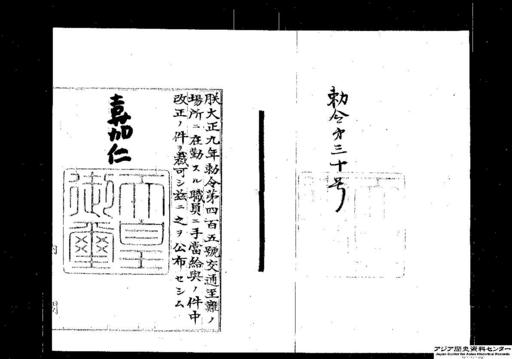 勅令第三十号
朕大正九年勅令第四百五號交通至難ノ
場所ニ在勤スル職員ニ手當給與ノ件中
改正ノ件ヲ裁可シ茲ニ之ヲ公布セシム
嘉仁
天皇
御璽
アジア歴史資料センター
Japan Center for Asian Historical Records